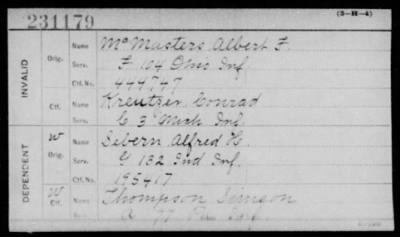 231179
(3-H-4)
INVALID
Orig.
Name McMasters, Albert F.
Serv. F 104 Ohio Inf.
Ctf. No. 444747
Ctf.
Name Kreutzer, Conrad
Serv. C 3 Mich Inf.
DEPENDENT
W
Orig.
Name Sebern, Alfred H.
Serv. G 132 Ind Inf.
Ctf. No. 195417
W
Ctf.
Name Thompson, Simson
Serv. A 77 Pa Inf.